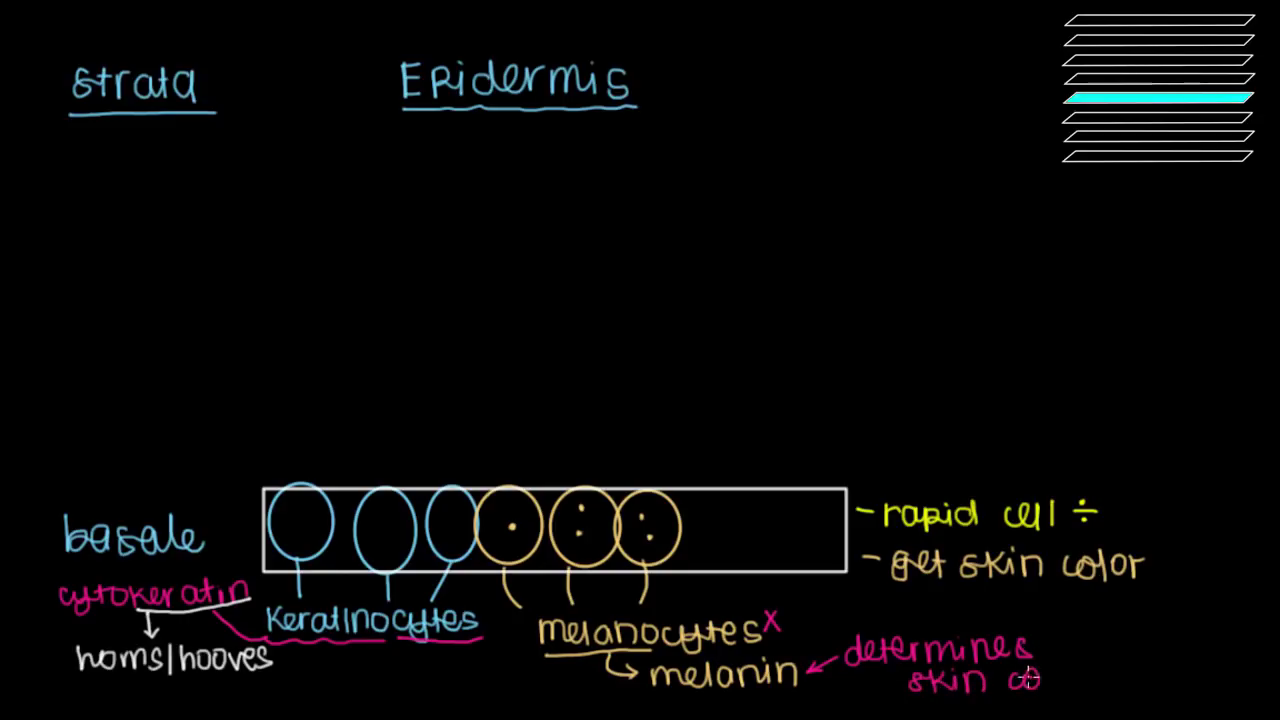 strata
Epidermis
basale
- rapid cell ÷
- get skin color
cytokeratin
keratinocytes
melanocytes x
horns/hooves
melanin
determines
skin co